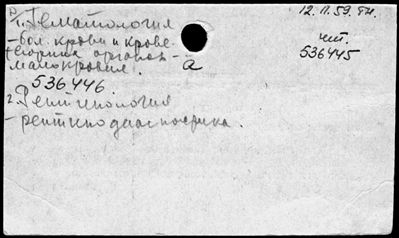 1. Гематология
- бол. крови и крове-
творных органов -
малокровие.
а
536446.
2. Рентгенология
- рентгенодиагностика.
12.11.59.
чит.
536445